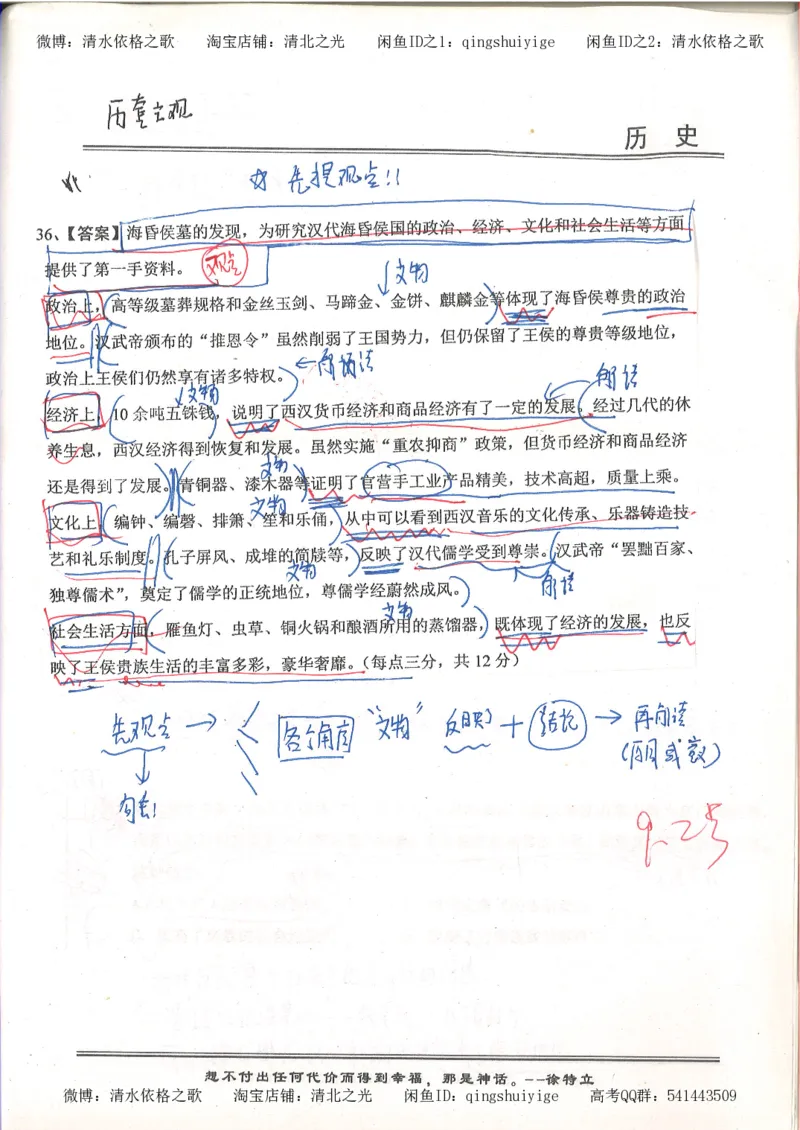 微博：清水依格之歌 淘宝店铺：清北之光 闲鱼ID之1：qingshuiyige 闲鱼ID之2：清水依格之歌
历套主观
历 史
☆ 先提观点!!
36、【答案】海昏侯墓的发现，为研究汉代海昏侯国的政治、经济、文化和社会生活等方面
提供了第一手资料。 观点
文物
政治上，高等级墓葬规格和金丝玉剑、马蹄金、金饼、麒麟金等体现了海昏侯尊贵的政治
地位。汉武帝颁布的“推恩令”虽然削弱了王国势力，但仍保留了王侯的尊贵等级地位，
政治上王侯们仍然享有诸多特权。
文物
经济上，10 余吨五铢钱，说明了西汉货币经济和商品经济有了一定的发展。经过几代的休
养生息，西汉经济得到恢复和发展。虽然实施“重农抑商”政策，但货币经济和商品经济
文物
还是得到了发展。青铜器、漆木器等证明了官营手工业产品精美，技术高超，质量上乘。
文物
文化上，编钟、编磬、排箫、笙和乐俑，从中可以看到西汉音乐的文化传承、乐器铸造技
艺和礼乐制度。孔子屏风、成堆的简牍等，反映了汉代儒学受到尊崇。汉武帝“罢黜百家、
文物
独尊儒术”，奠定了儒学的正统地位，尊儒学经蔚然成风。
文物
社会生活方面，雁鱼灯、虫草、铜火锅和酿酒所用的蒸馏器，既体现了经济的发展，也反
映了王侯贵族生活的丰富多彩，豪华奢靡。（每点三分，共 12 分）
先观点 → 各个角度 “文物” 反映了 + 结论 →
9.25
想不付出任何代价而得到幸福，那是神话。--徐特立
微博：清水依格之歌 淘宝店铺：清北之光 闲鱼ID：qingshuiyige 高考QQ群：541443509